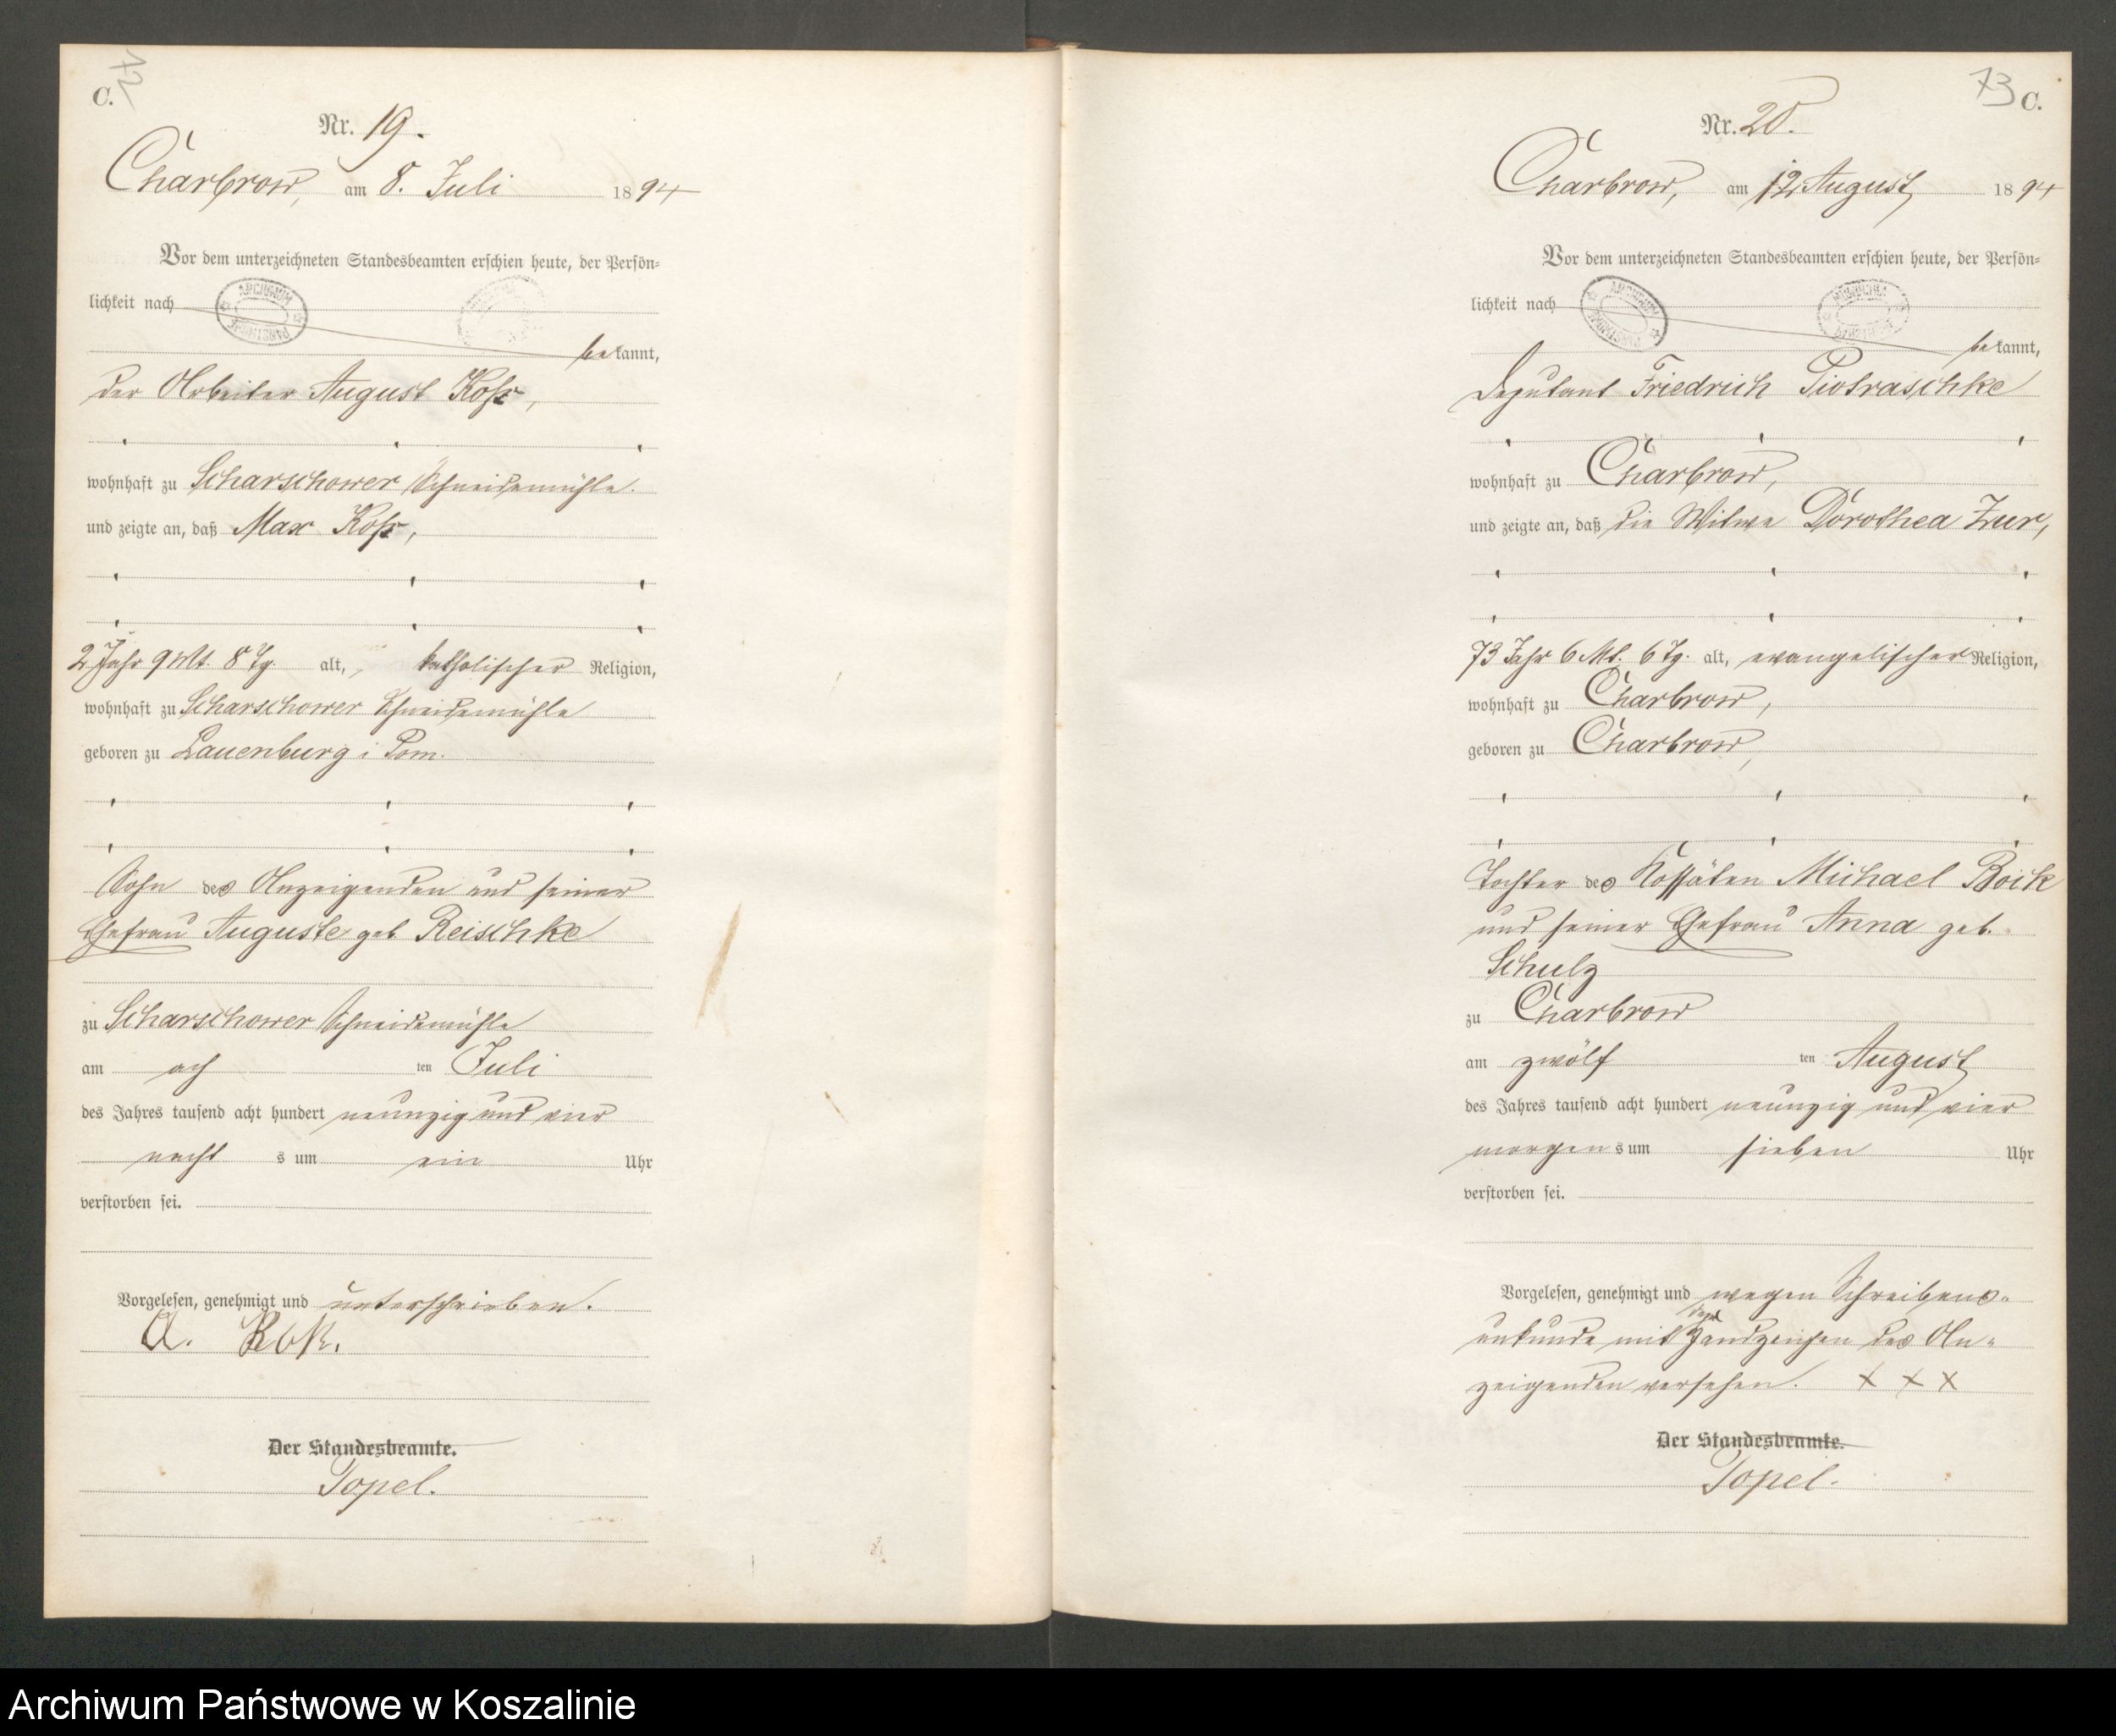 C.
Nr. 19.
Charbrow, am 8. Juli 1894
Vor dem unterzeichneten Standesbeamten erschien heute, der Persön=
lichkeit nach
ARCHIWUM PAŃSTWOWE
bekannt,
der Arbeiter August Koß,
wohnhaft zu Scharschower Schneidemühle.
und zeigte an, daß Max Koß,
2 Jahr 9 Mt. 8 Tg. alt, katholischer Religion,
wohnhaft zu Scharschower Schneidemühle
geboren zu Lauenburg i Pom.
Sohn des Anzeigenden und seiner
Ehefrau Auguste geb. Reischke
zu Scharschower Schneidemühle
am ach ten Juli
des Jahres tausend acht hundert neunzig und vier
nacht s um ein Uhr
verstorben sei.
Vorgelesen, genehmigt und unterschrieben.
A.
Der Standesbeamte.
Topel.
73 C.
Nr. 20.
Charbrow, am 12. August 1894
Vor dem unterzeichneten Standesbeamten erschien heute, der Persön=
lichkeit nach
ARCHIWUM PAŃSTWOWE
bekannt,
Deputant Friedrich Piotraschke
wohnhaft zu Charbrow,
und zeigte an, daß die Witwe Dorothea Zur,
73 Jahr 6 Mt. 6 Tg. alt, evangelischer Religion,
wohnhaft zu Charbrow,
geboren zu Charbrow,
Tochter des Kossäten Michael Boik
und seiner Ehefrau Anna geb.
Schulz
zu Charbrow
am zwölf ten August
des Jahres tausend acht hundert neunzig und vier
morgen s um sieben Uhr
verstorben sei.
Vorgelesen, genehmigt und wegen Schreibens=
unkunde mit Handzeichen des An=
zeigenden versehen. X X X
Der Standesbeamte.
Topel.
Archiwum Państwowe w Koszalinie